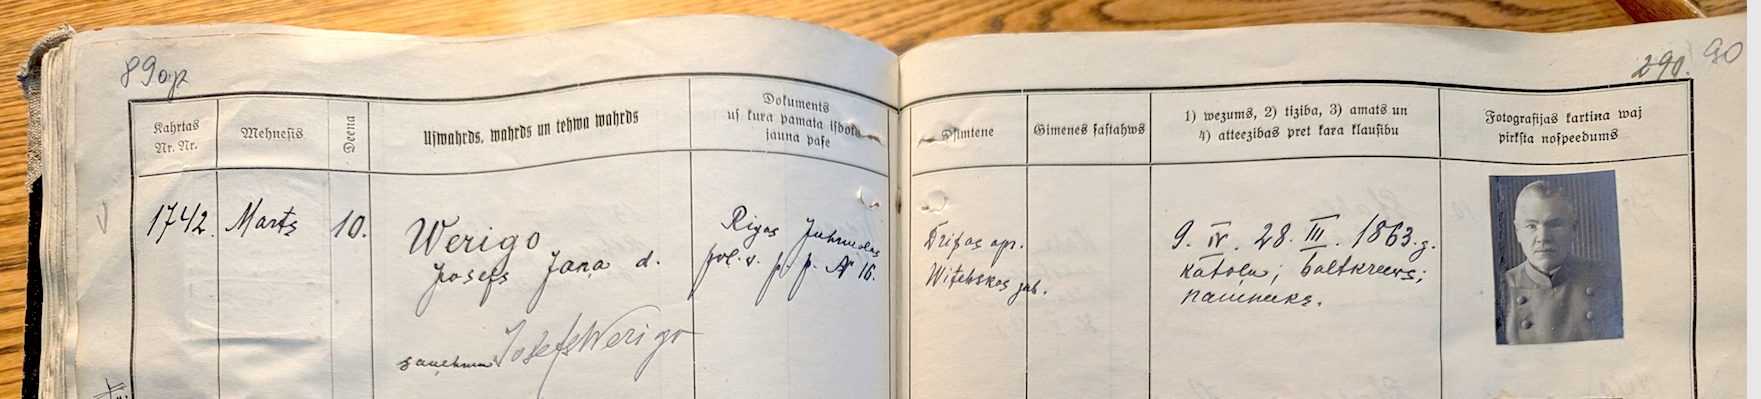 89op
290. 90
Kahrtas
Nr. Nr.
Mehnesis
Deena
Uſwahrds, wahrds un tehwa wahrds
Dokuments
uſ kura pamata iſdota
jauna paſe
Dſimtene
Gimenes ſaſtahws
1) wezums, 2) tiziba, 3) amats un
4) atteezibas pret kara klauſibu
Fotografijas kartina waj
pirkſta noſpeedums
1742.
Marts
10.
Werigo
Josefs Jana d.
Rigas Juhrmalas
pol. v. p. p. № 16.
Drisas apr.
Witebskas gub.
9. IV. 28. III. 1863. g.
katolu; baltkreews;
namneeks.
saņehmu Josefs Werigo